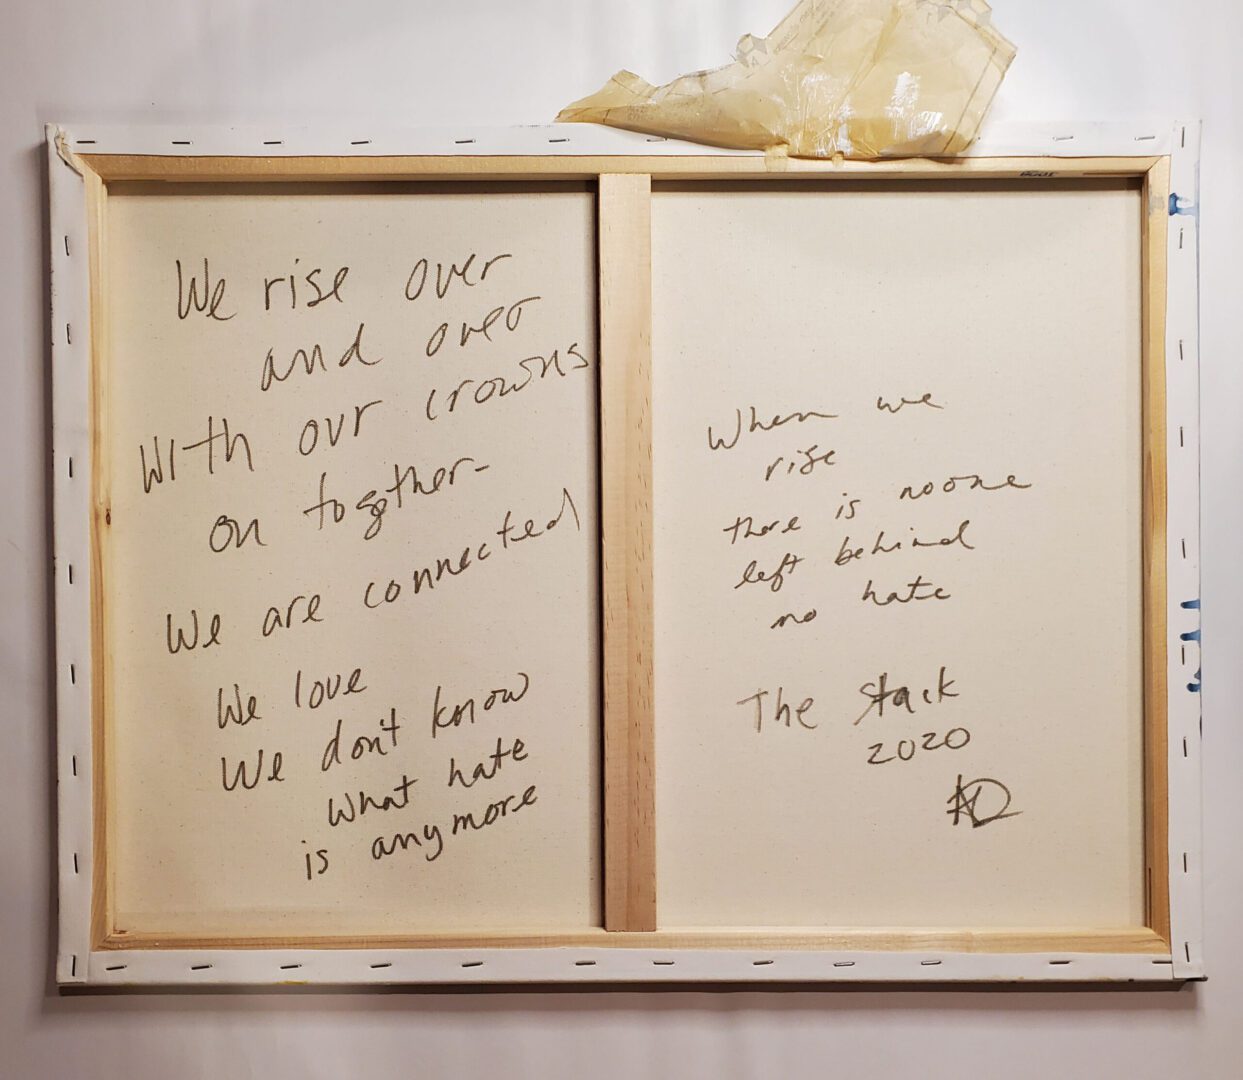 We rise over
and over
With our crowns
on together-
We are connected
We love
We don't know
what hate
is anymore
When we
rise
there is no one
left behind
no hate
The Stack
2020